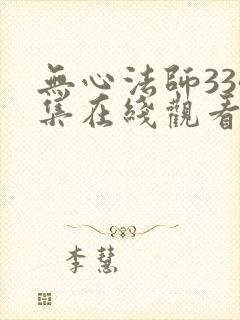 無心法師33
集在綫觀看
李慧